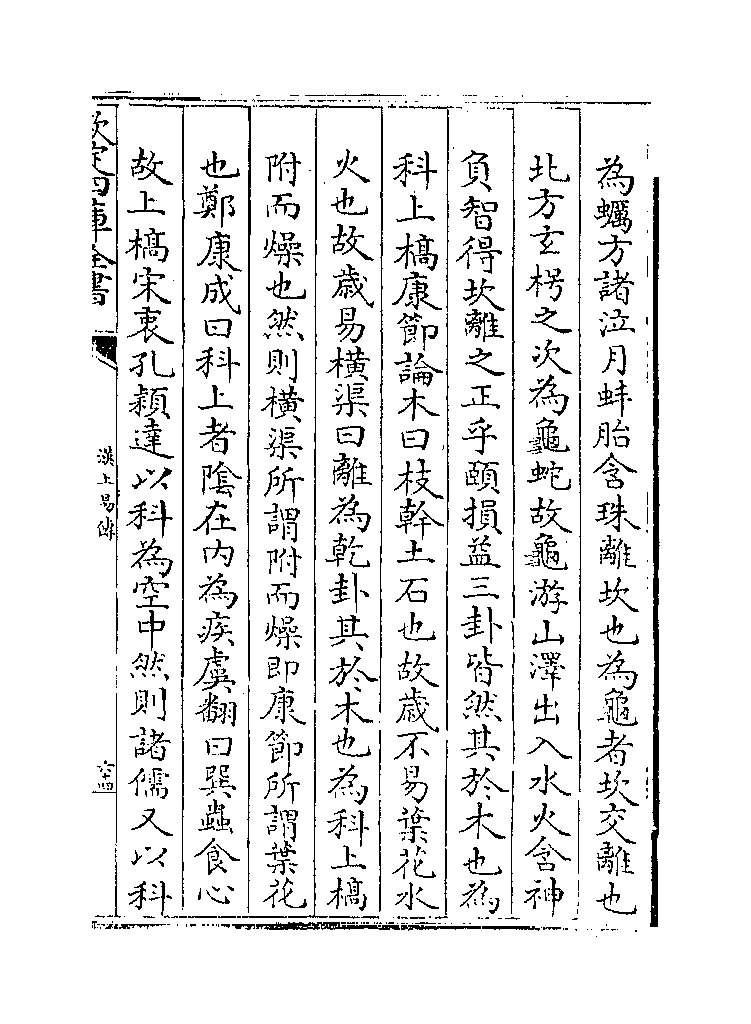 為蠣方諸泣月蚌胎含珠離坎也為龜者坎交離也
北方玄枵之次為龜蛇故龜游山澤出入水火含神
負智得坎離之正乎頤損益三卦皆然其於木也為
科上槁康節論木曰枝幹土石也故歳不易葉花水
火也故歳易橫渠曰離為乾卦其於木也為科上槁
附而燥也然則橫渠所謂附而燥即康節所謂葉花
也鄭康成曰科上者隂在内為疾虞翻曰巽蟲食心
故上槁宋衷孔穎達以科為空中然則諸儒又以科
欽定四庫全書
漢上易傳
六十四